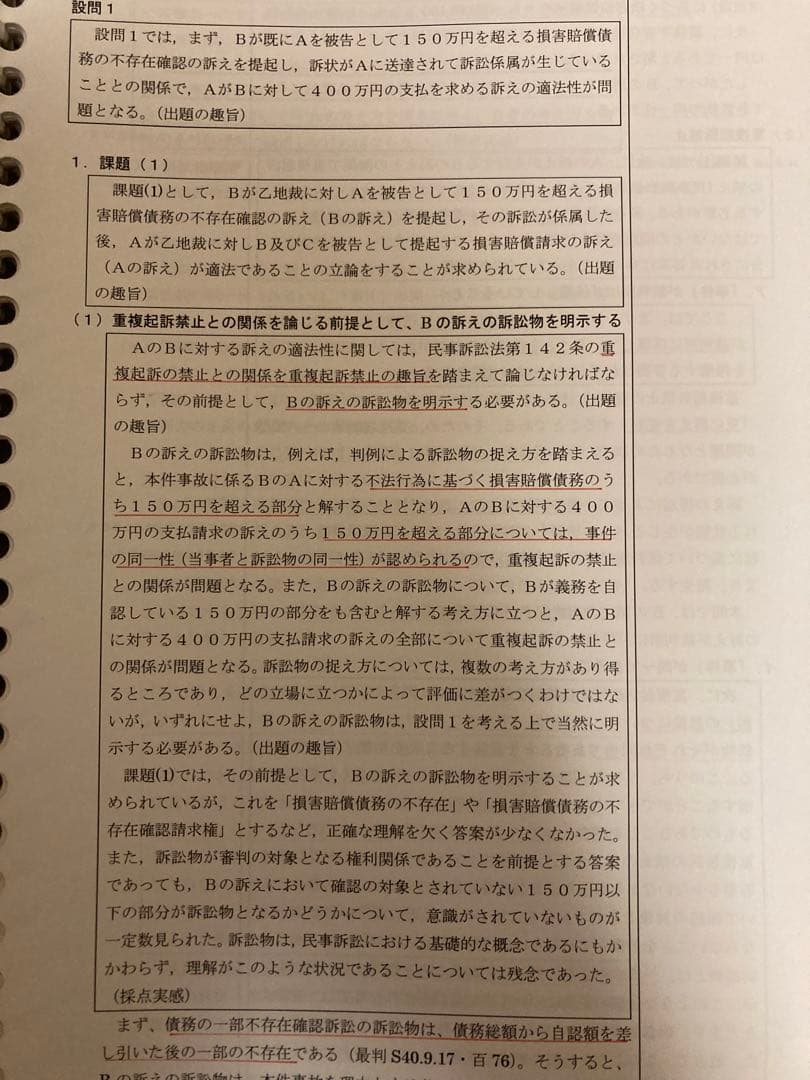 設問1
設問1では，まず，Bが既にAを被告として150万円を超える損害賠償債
務の不存在確認の訴えを提起し，訴状がAに送達されて訴訟係属が生じている
こととの関係で，AがBに対して400万円の支払を求める訴えの適法性が問
題となる。（出題の趣旨）
1．課題（1）
課題⑴として，Bが乙地裁に対しAを被告として150万円を超える損
害賠償債務の不存在確認の訴え（Bの訴え）を提起し，その訴訟が係属した
後，Aが乙地裁に対しB及びCを被告として提起する損害賠償請求の訴え
（Aの訴え）が適法であることの立論をすることが求められている。（出題
の趣旨）
（1）重複起訴禁止との関係を論じる前提として、Bの訴えの訴訟物を明示する
AのBに対する訴えの適法性に関しては，民事訴訟法第142条の重
複起訴の禁止との関係を重複起訴禁止の趣旨を踏まえて論じなければな
らず，その前提として，Bの訴えの訴訟物を明示する必要がある。（出題
の趣旨）
Bの訴えの訴訟物は，例えば，判例による訴訟物の捉え方を踏まえる
と，本件事故に係るBのAに対する不法行為に基づく損害賠償債務のう
ち150万円を超える部分と解することとなり，AのBに対する400
万円の支払請求の訴えのうち150万円を超える部分については，事件
の同一性（当事者と訴訟物の同一性）が認められるので，重複起訴の禁止
との関係が問題となる。また，Bの訴えの訴訟物について，Bが義務を自
認している150万円の部分をも含むと解する考え方に立つと，AのB
に対する400万円の支払請求の訴えの全部について重複起訴の禁止と
の関係が問題となる。訴訟物の捉え方については，複数の考え方があり得
るところであり，どの立場に立つかによって評価に差がつくわけではな
いが，いずれにせよ，Bの訴えの訴訟物は，設問1を考える上で当然に明
示する必要がある。（出題の趣旨）
課題⑴では，その前提として，Bの訴えの訴訟物を明示することが求
められているが，これを「損害賠償債務の不存在」や「損害賠償債務の不
存在確認請求権」とするなど，正確な理解を欠く答案が少なくなかった。
また，訴訟物が審判の対象となる権利関係であることを前提とする答案
であっても，Bの訴えにおいて確認の対象とされていない150万円以
下の部分が訴訟物となるかどうかについて，意識がされていないものが
一定数見られた。訴訟物は，民事訴訟における基礎的な概念であるにもか
かわらず，理解がこのような状況であることについては残念であった。
（採点実感）
まず、債務の一部不存在確認訴訟の訴訟物は、債務総額から自認額を差
し引いた後の一部の不存在である（最判S40.9.17・百76）。そうすると、